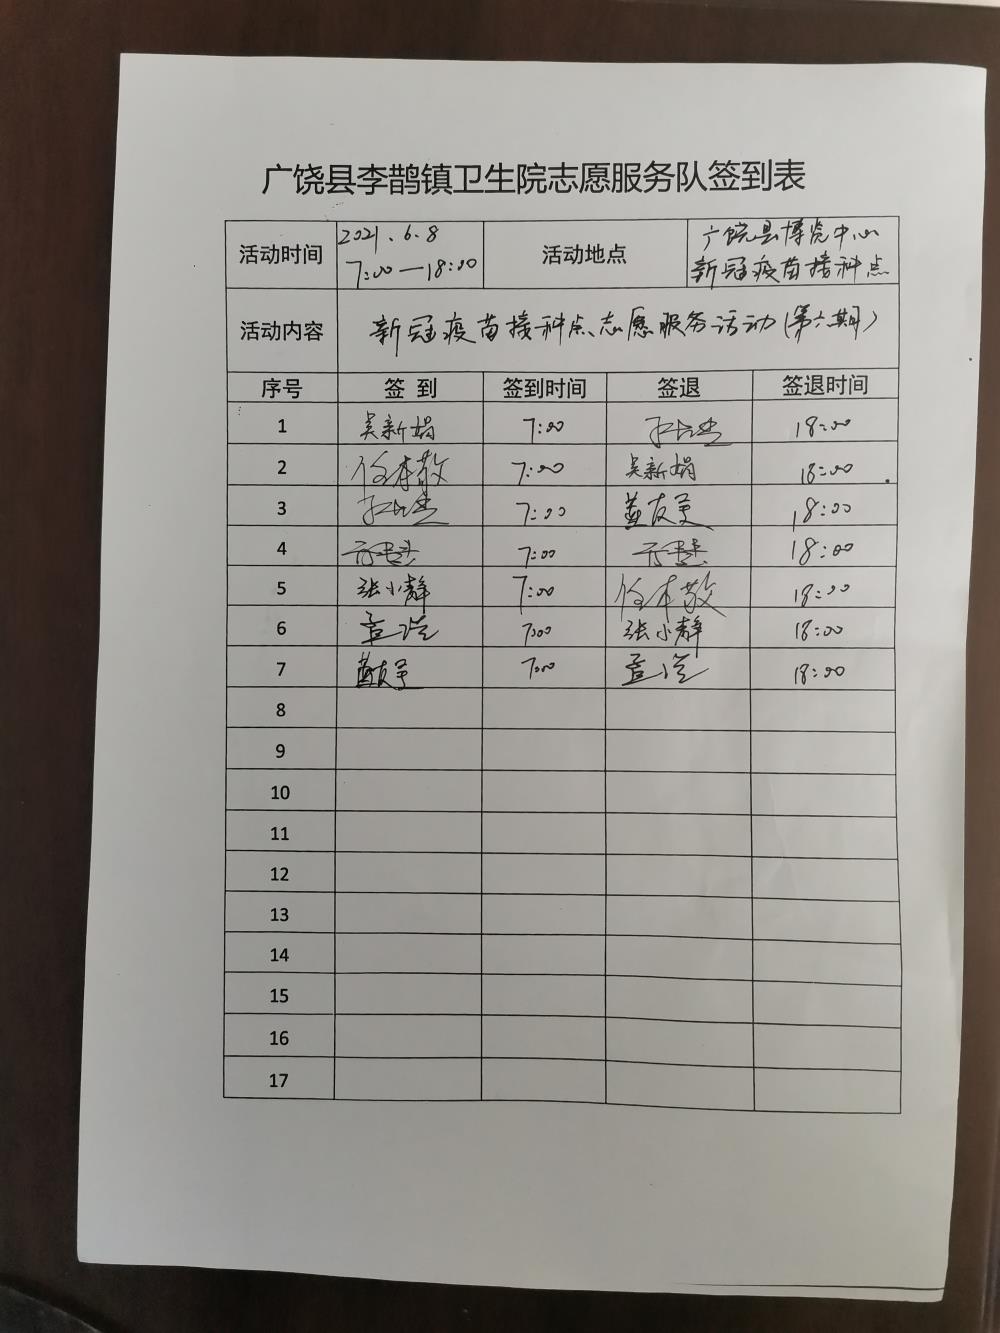 广饶县李鹊镇卫生院志愿服务队签到表
活动时间 2021.6.8 7:00—18:00 活动地点 广饶县博览中心 新冠疫苗接种点
活动内容 新冠疫苗接种点志愿服务活动(第六期)
序号 签到 签到时间 签退 签退时间
1 吴新娟 7:00 18:00
2 任本敬 7:00 吴新娟 18:00
3 7:00 18:00
4 7:00 18:00
5 张小静 7:00 任本敬 18:00
6 7:00 张小静 18:00
7 7:00 18:00
8
9
10
11
12
13
14
15
16
17